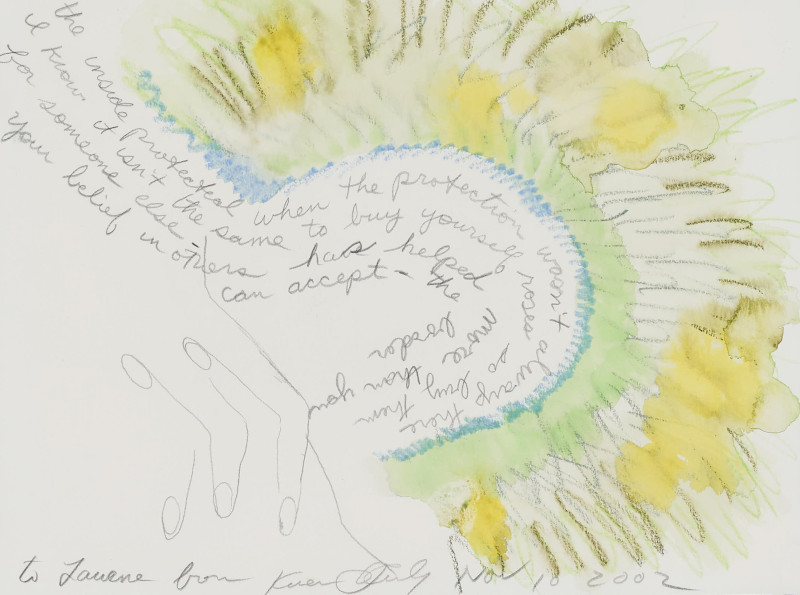 the inside protected when the protection wasn't always there
I know it isn't the same to buy yourself roses so buy them
for someone else - has helped more than you
your belief in others can accept - the
to Laurene from Karen Nov 10 2002